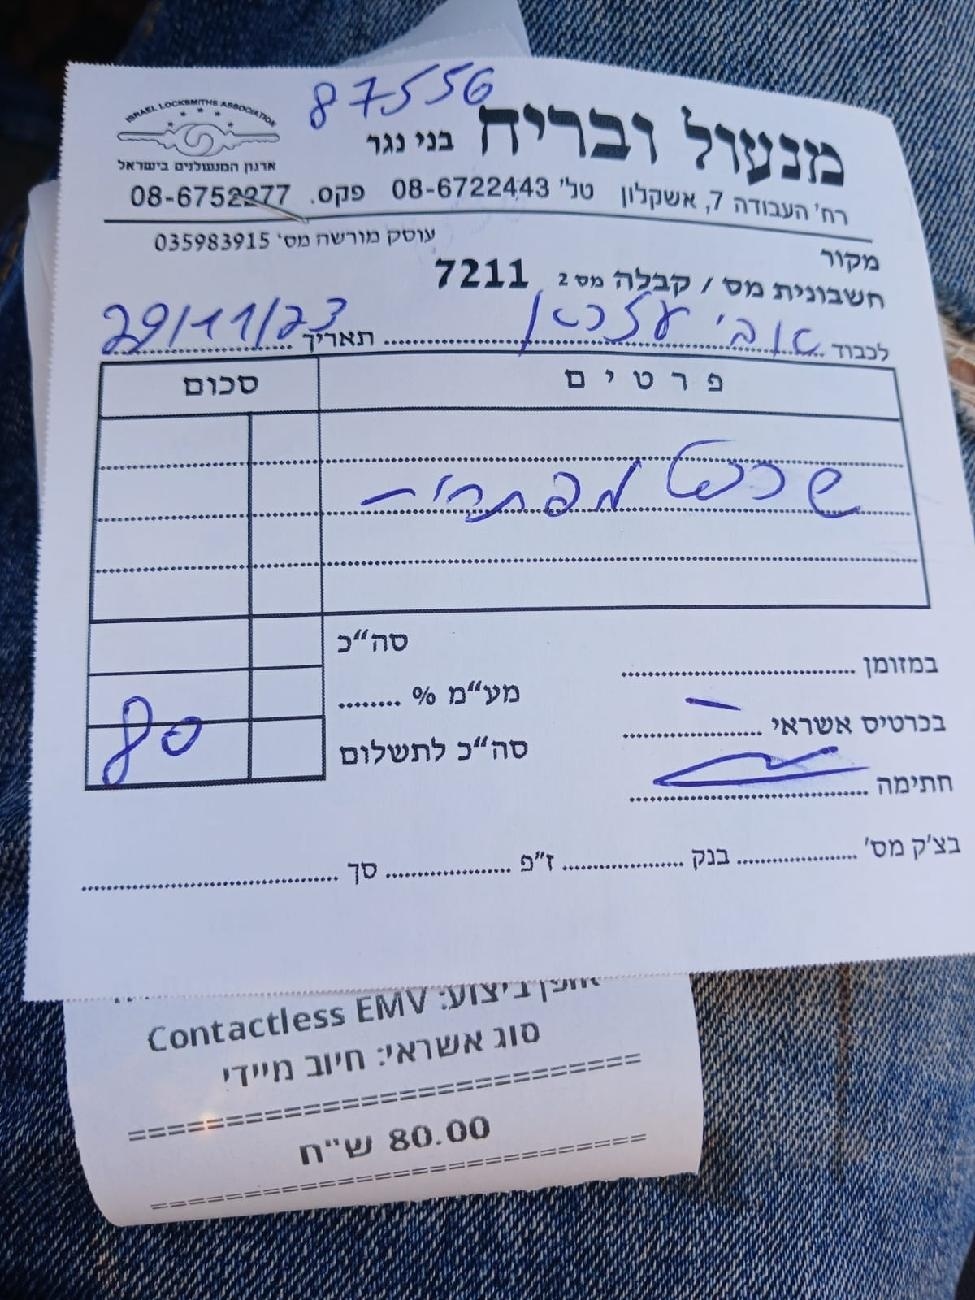 87556
ISRAEL LOCKSMITHS ASSOCIATION
ארגון המנעולנים בישראל
מנעול ובריח בני נגר
רח' העבודה 7, אשקלון טל' 08-6722443 פקס. 08-6752277
עוסק מורשה מס' 035983915
מקור
חשבונית מס / קבלה מס 2 7211
לכבוד אבי תאריך 29/11/23
פרטים סכום
שכפול מפתחות
סה"כ
במזומן
מע"מ %
בכרטיס אשראי
סה"כ לתשלום 80
חתימה
בצ'ק מס' בנק ז"פ סך
אופן ביצוע: Contactless EMV
סוג אשראי: חיוב מיידי
========================
80.00 ש"ח
========================